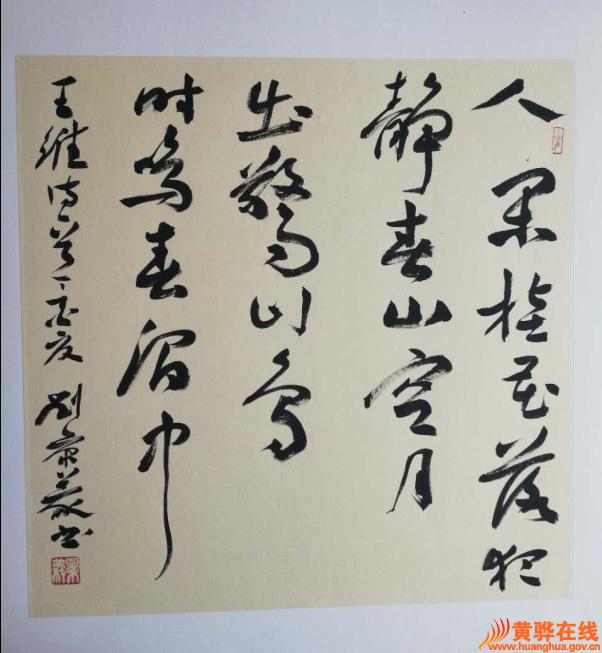 人闲桂花落夜
静春山空月
出惊山鸟
时鸣春涧中
王维诗 刘景义书
黄骅在线
www.huanghua.gov.cn